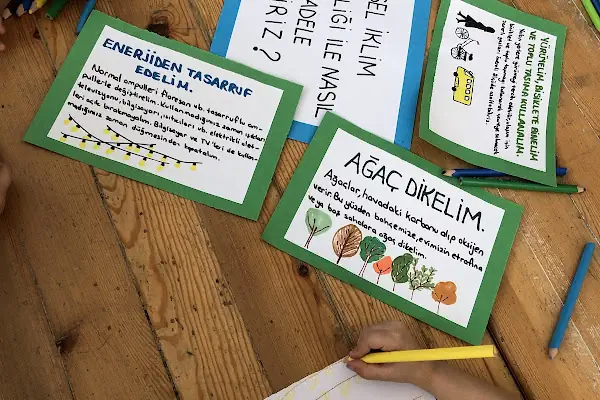 ENERJİDEN TASARRUF
EDELİM.
Normal ampulleri floresan vb. tasarruflu am-
pullerle değiştirelim. Kullanmadığımız zaman ışıkları
televizyonu, bilgisayarı, ısıtıcıları vb. elektrikli alet-
leri açık bırakmayalım. Bilgisayar ve TV'leri de kullan-
madığımız zaman düğmesinden kapatalım.
SEL İKLİM
LİĞİ İLE NASIL
ADELE
İRİZ?
YÜRÜYELİM, BİSİKLETE BİNELİM
VE TOPLU TAŞIMA KULLANALIM.
AĞAÇ DİKELİM.
Ağaçlar, havadaki karbonu alıp oksijen
verir. Bu yüzden bahçemize, evimizin etrafına
veya boş sahalara ağaç dikelim.